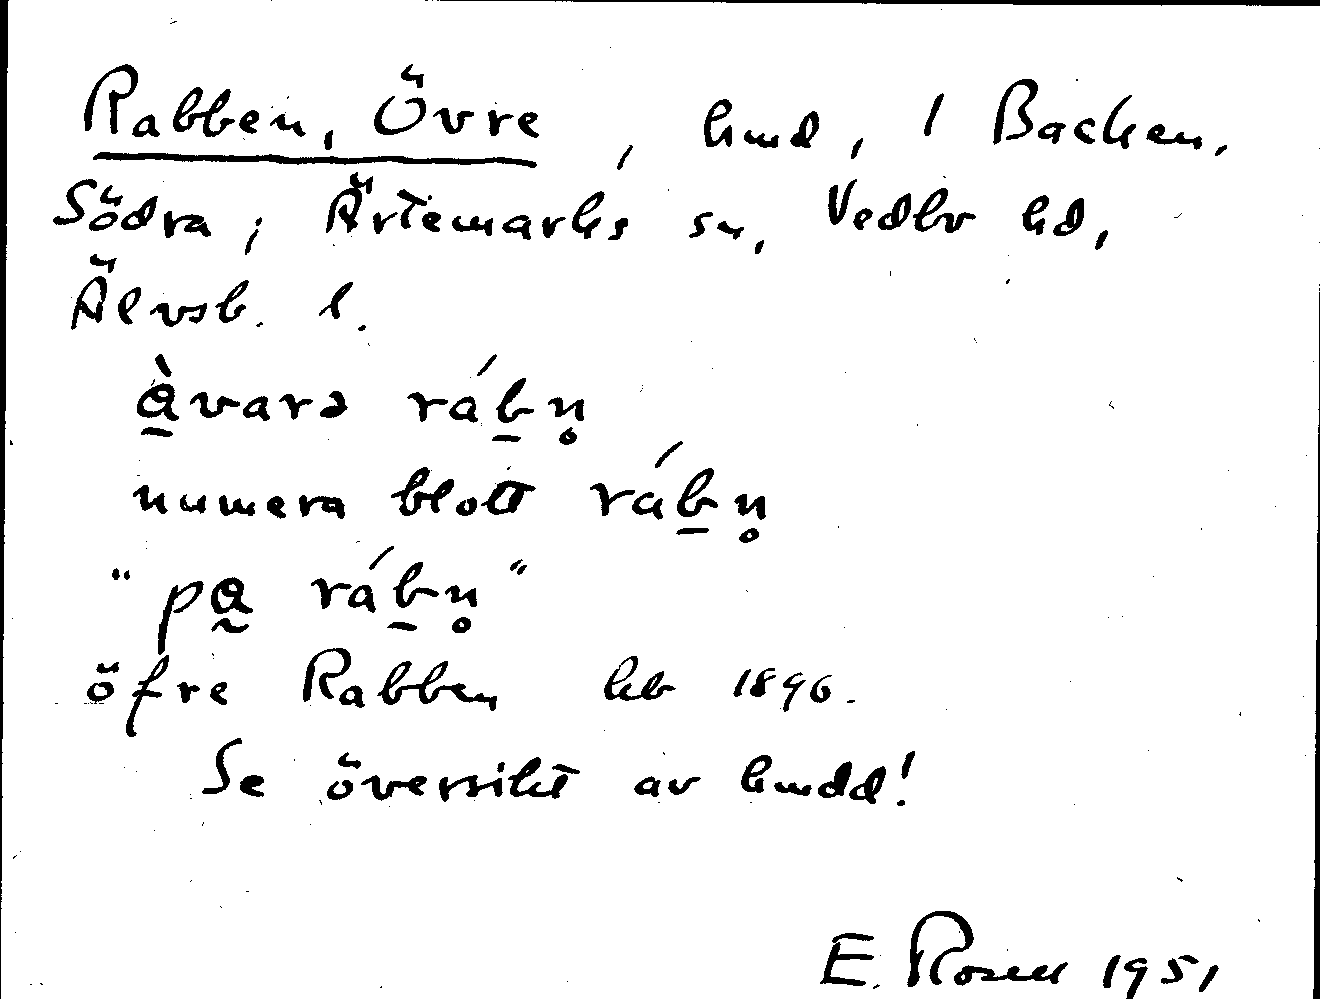 Rabben, Övre, hmd, 1 Backen,
Södra; Ärtemarks sn, Vedbo hd,
Älvsb. l.
à̱varə ráḇn̥
numera blott ráḇn̥
"pa̰ ráḇn̥"
öfre Rabben hb 1896.
Se översikt av hmdd!
E. Rosell 1951